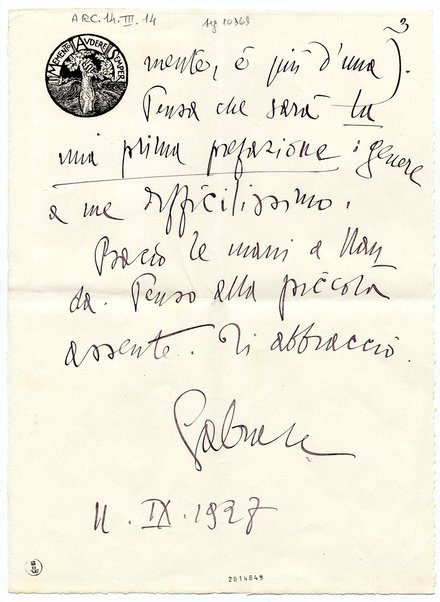 ARC.14.III.14
3
MEMENTO AUDERE SEMPER
mente, è più d'una).
Pensa che sarà la
mia prima prefazione: genere
a me difficilissimo.
Bacio le mani a Nan
da. Penso alla piccola
assente. Ti abbraccio.
Gabriele
11. IX. 1927
2814849